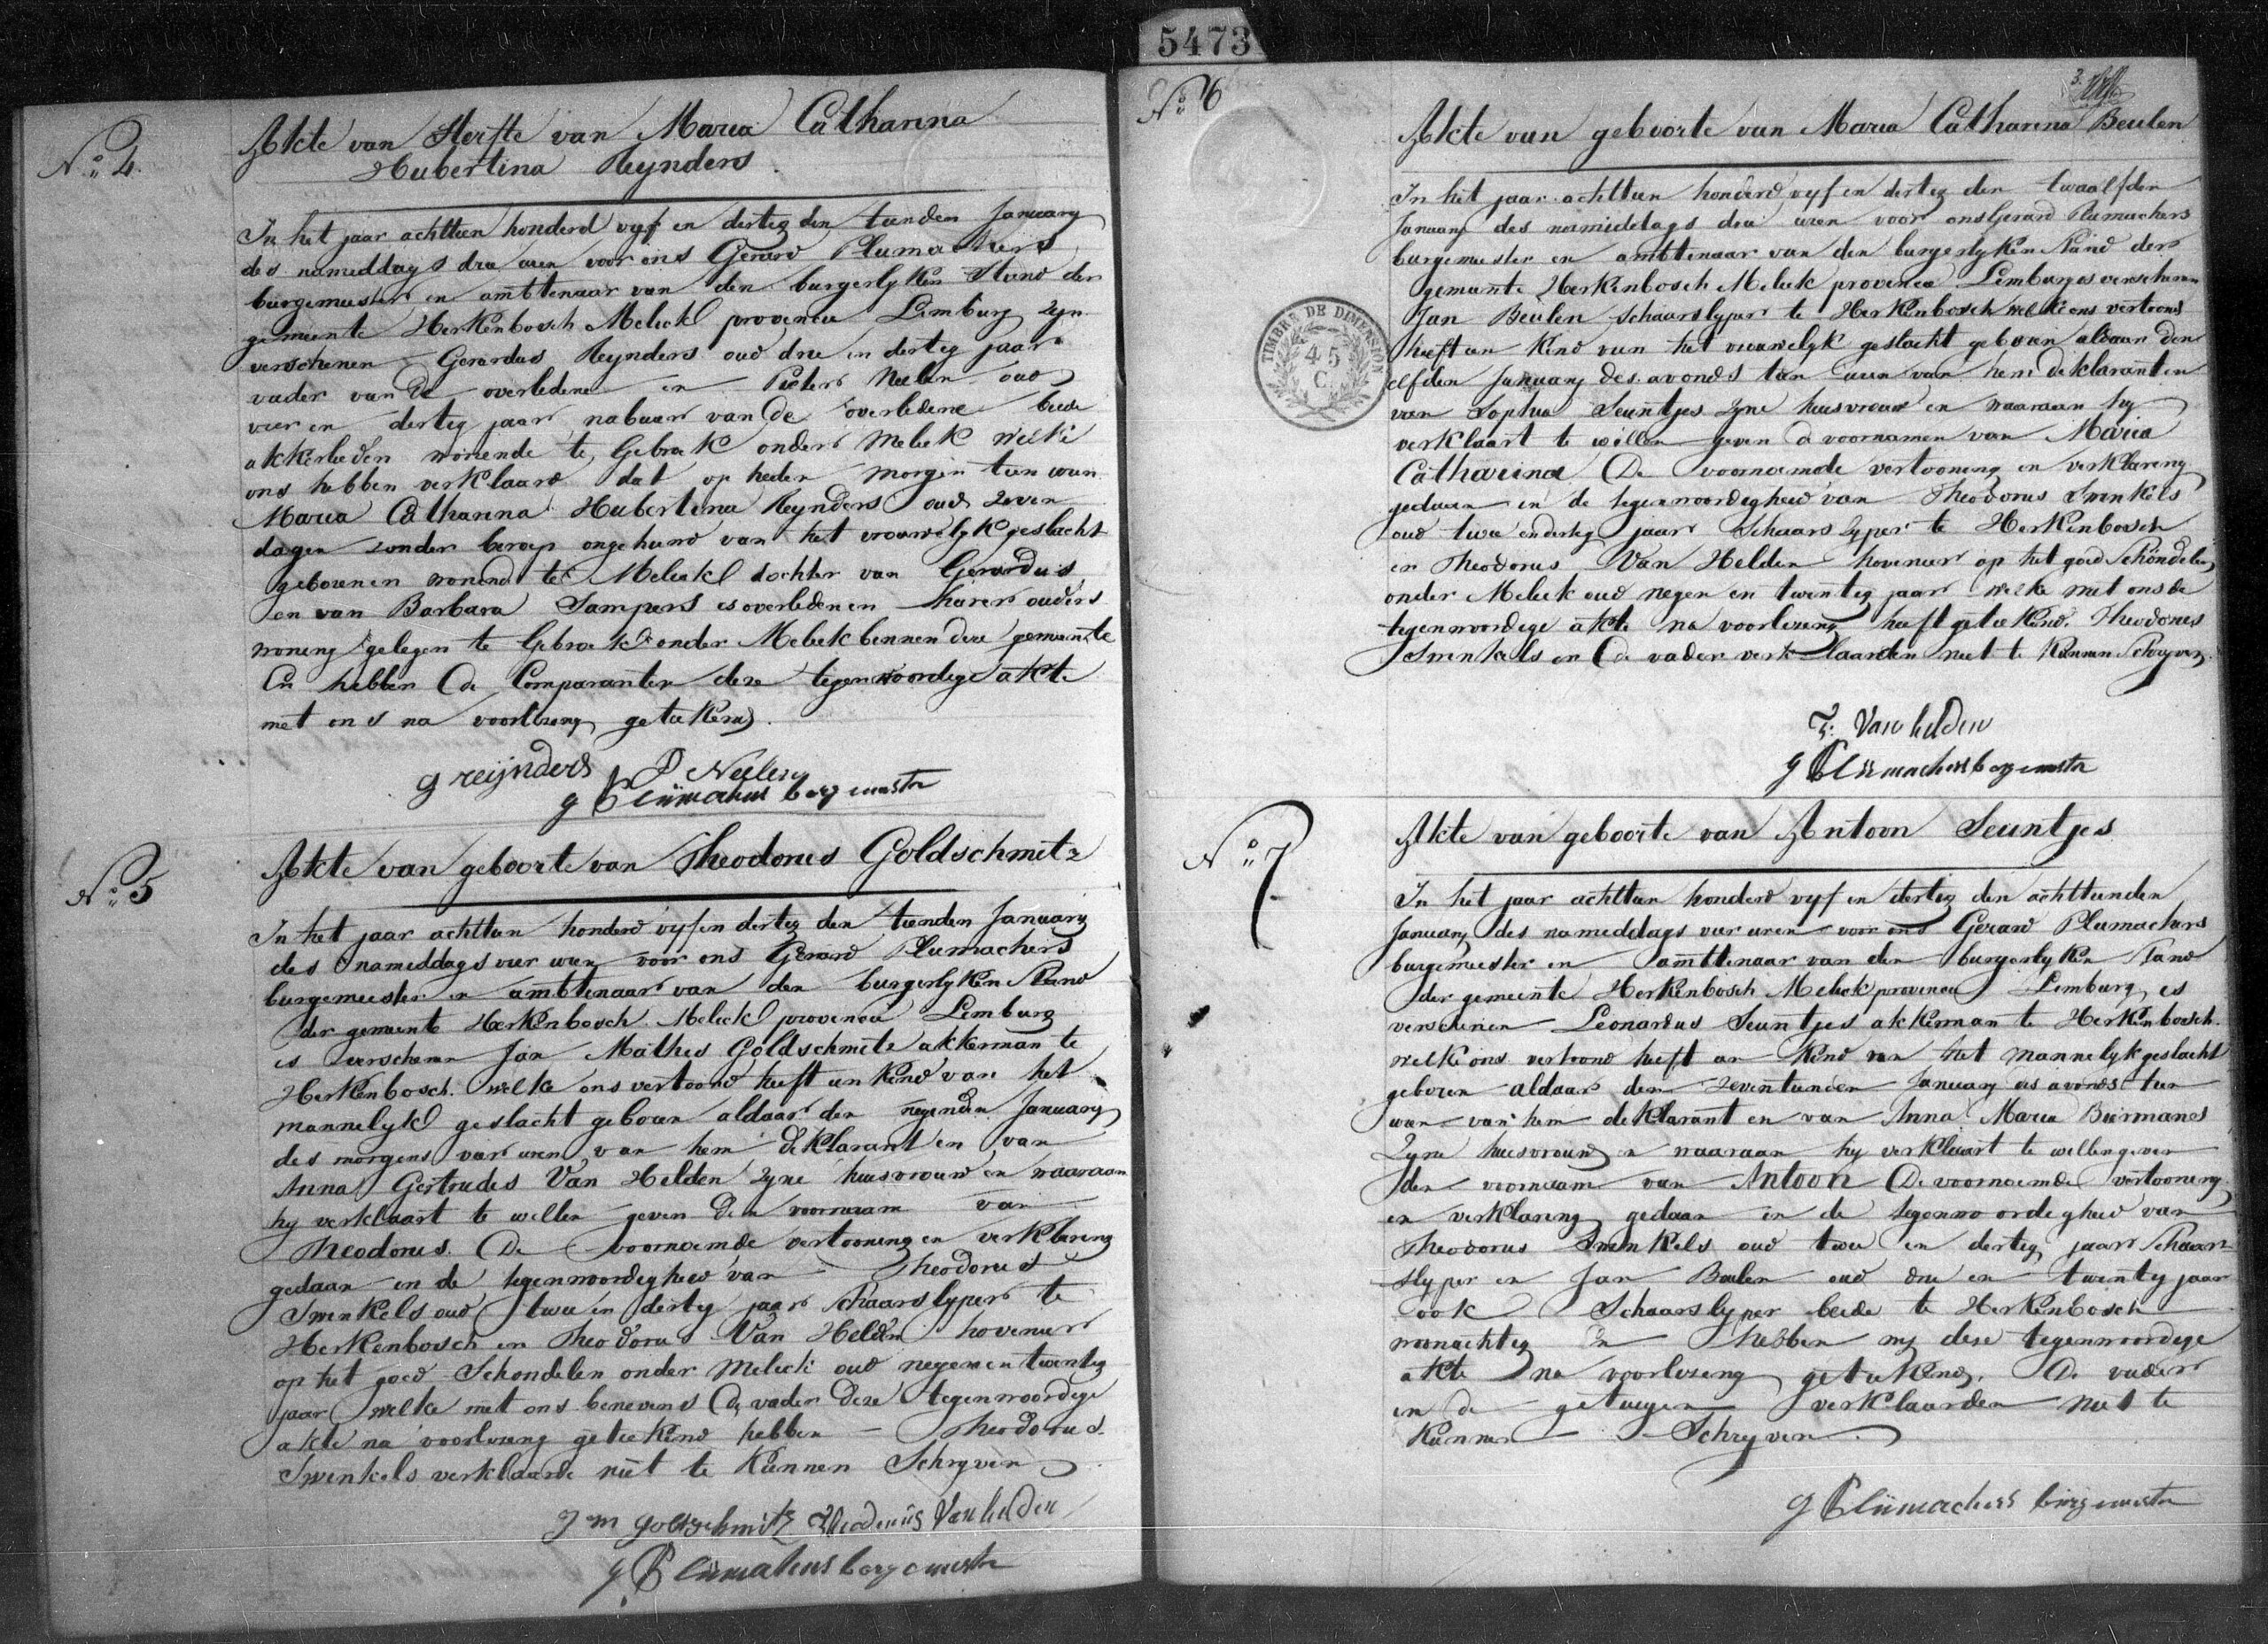 5473
No. 4.
Akte van Sterfte van Maria Catharina
Hubertina Reynders.
In het jaar achttien honderd vyf en dertig den tienden January
des nameddags drie uren voor ons Gerard Plumachers
burgemeester en ambtenaar van den burgerlyken Stand der
gemeente Herkenbosch Melick provincie Limburg zyn
verschenen Gerardus Reynders oud drie en dertig jaar
vader van de overledene en Pieter Neelen oud
vier en dertig jaar nabuur van de overledene beide
akkerlieden wonende te Gebroek onder Melick welke
ons hebben verklaard dat op heden morgen tien uren
Maria Catharina Hubertina Reynders oud zeven
dagen zonder beroep ongehuwd van het vrouwelyk geslacht
geboren en wonend te Melick dochter van Gerardus
en van Barbara Sampers is overleden in harer ouders
woning gelegen te Gebroek onder Melick binnen deze gemeente
En hebben de Comparanten deze tegenwoordige akte
met ons na voorlezing getekend.
G reijnders P Neelen
g Plümachers borgemestr
No. 5
Akte van geboorte van Theodorus Goldschmitz
In het jaar achttien honderd vyf en dertig den tienden January
des nameddags vier uren voor ons Gerard Plumachers
burgemeester en ambtenaar van den burgerlyken Stand
der gemeente Herkenbosch Melick provincie Limburg
is verschenen Jan Mathis Goldschmitz akkerman te
Herkenbosch. welke ons vertoond heeft een kind van het
mannelyk geslacht geboren aldaar den negenden January
des morgens vier uren van hem deklarant en van
Anna Gertrudes Van Helden zyne huisvrouw en waaraan
hy verklaart te willen geven den voornaam van
Theodorus. De voornoemde vertooning en verklaring
gedaan in de tegenwoordigheid van Theodorus
Swinkels oud twee en dertig jaar schaarslyper te
Herkenbosch en Theodorus Van Helden hovenier
op het goed Schondelen onder Melick oud negen en twentig
jaar welke met ons benevens de vader deze tegenwoordige
akte na voorlezing getekend hebben – Theodorus
Swinkels verklaarde niet te kunnen Schryven
J m goltschmitz Theodorus Van helden
g Plümachers borgemestr
No. 6
3.
Akte van geboorte van Maria Catharina Beulen
In het jaar achttien honderd vyf en dertig den twaalfden
January des namiddags drie uren voor ons Gerard Plumachers
burgemeester en ambtenaar van den burgerlyken Stand der
gemeente Herkenbosch Melick provincie Limburg is verschenen
Jan Beulen schaarslyper te Herkenbosch welke ons vertoond
heeft een kind van het vrouwelyk geslacht geboren aldaar den
elfden January des avonds tien uren van hem deklarant en
van Sophia Seuntjes zyne huisvrouw en waaraan hy
verklaart te willen geven de voornamen van Maria
Catharina De voornoemde vertooning en verklaring
gedaan in de tegenwoordigheid van Theodorus Swinkels
oud twee en dertig jaar Schaarslyper te Herkenbosch
en Theodorus Van Helden hovenier op het goed Schöndelen
onder Melick oud negen en twentig jaar welke met ons de
tegenwoordige akte na voorlezing heeft getekend. Theodorus
Swinkels en de vader verklaarden niet te kunnen Schryven.
TIMBRE DE DIMENSION
45
C.
T. Van helden
g Plümachers borgemestr
No. 7
Akte van geboorte van Antoon Seuntjes
In het jaar achttien honderd vyf en dertig den achttienden
January des nameddags vier uren voor ons Gerard Plumachers
burgemeester en amttenaar van den burgerlyken Stand
der gemeente Herkenbosch Melick provincie Limburg is
verschenen Leonardus Seuntjes akkerman te Herkenbosch.
welke ons vertoond heeft een kind van het mannelyk geslacht
geboren aldaar den zeventienden January des avonds tien
uren van hem deklarant en van Anna Maria Biermanes
Zyne huisvrouw en waaraan hy verklaart te willen geven
den voornaam van Antoon De voornoemde vertooning
en verklaring gedaan in de tegenwoordigheid van
Theodorus Swinkels oud twee en dertig jaar Schaar-
slyper en Jan Beulen oud drie en twentig jaar
ook Schaarslyper beide te Herkenbosch
woonachtig En hebben wy deze tegenwoordige
akte na voorlezing getekend. De vader
en de getuigen verklaarden niet te
kunnen – Schryven.
g Plümachers borgemestr